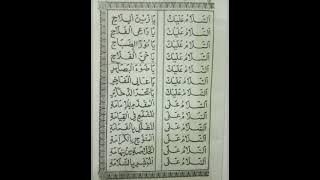 اَلسَّلَامُ عَلَيْكَ يَا زَيْنَ الْمِلَاحِ
اَلسَّلَامُ عَلَيْكَ يَا دَاعِيَ الْفَلَاحِ
اَلسَّلَامُ عَلَيْكَ يَا نُوْرَ الصَّبَاحِ
اَلسَّلَامُ عَلَيْكَ الْفَلَاحِ
اَلسَّلَامُ عَلَيْكَ يَا ضَوْءَ الْبَصَائِرِ
اَلسَّلَامُ عَلَيْكَ يَا عَالِيَ الْمَفَاخِرِ
اَلسَّلَامُ عَلَيْكَ
اَلسَّلَامُ عَلَى الْمُقَدَّمِ لِلْاِمَامَةِ
اَلسَّلَامُ عَلَى الْمُشَفَّعِ فِي الْقِيَامَةِ
اَلسَّلَامُ عَلَى الْمُظَلَّلِ بِالْغَمَامَةِ
اَلسَّلَامُ عَلَى الْمُتَوَّجِ بِالْكَرَامَةِ
اَلسَّلَامُ عَلَى الْخُلَاصَةِ مِنْ تِهَامَةِ
اَلسَّلَامُ عَلَى الْمُبَشِّرِ بِالسَّلَامَةِ